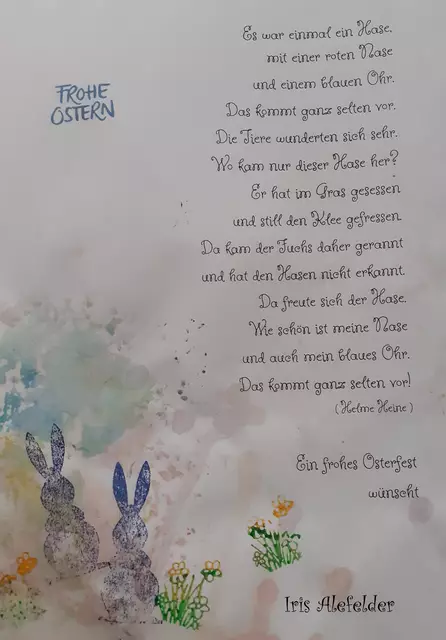 FROHE
OSTERN
Es war einmal ein Hase,
mit einer roten Nase
und einem blauen Ohr.
Das kommt ganz selten vor.
Die Tiere wunderten sich sehr.
Wo kam nur dieser Hase her?
Er hat im Gras gesessen
und still den Klee gefressen.
Da kam der Fuchs daher gerannt
und hat den Hasen nicht erkannt.
Da freute sich der Hase.
Wie schön ist meine Nase
und auch mein blaues Ohr.
Das kommt ganz selten vor!
(Helme Heine)
Ein frohes Osterfest
wünscht
Iris Alefelder